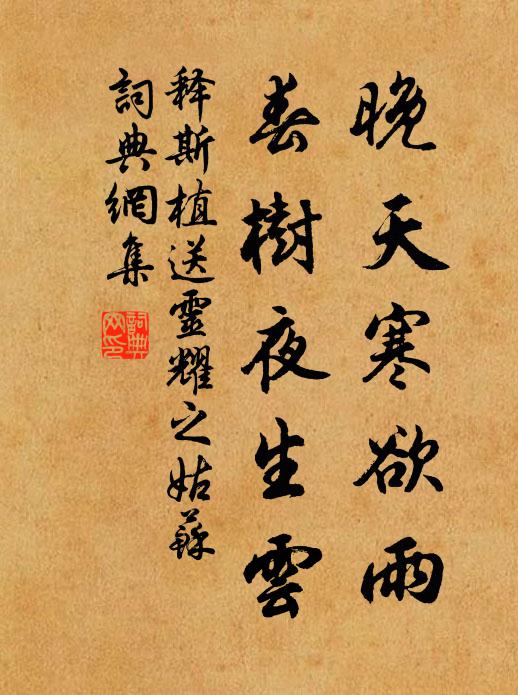 晚天寒欲雨
春樹夜生雲
释斯植送靈耀之姑蘇
詞典網集
詞典网印